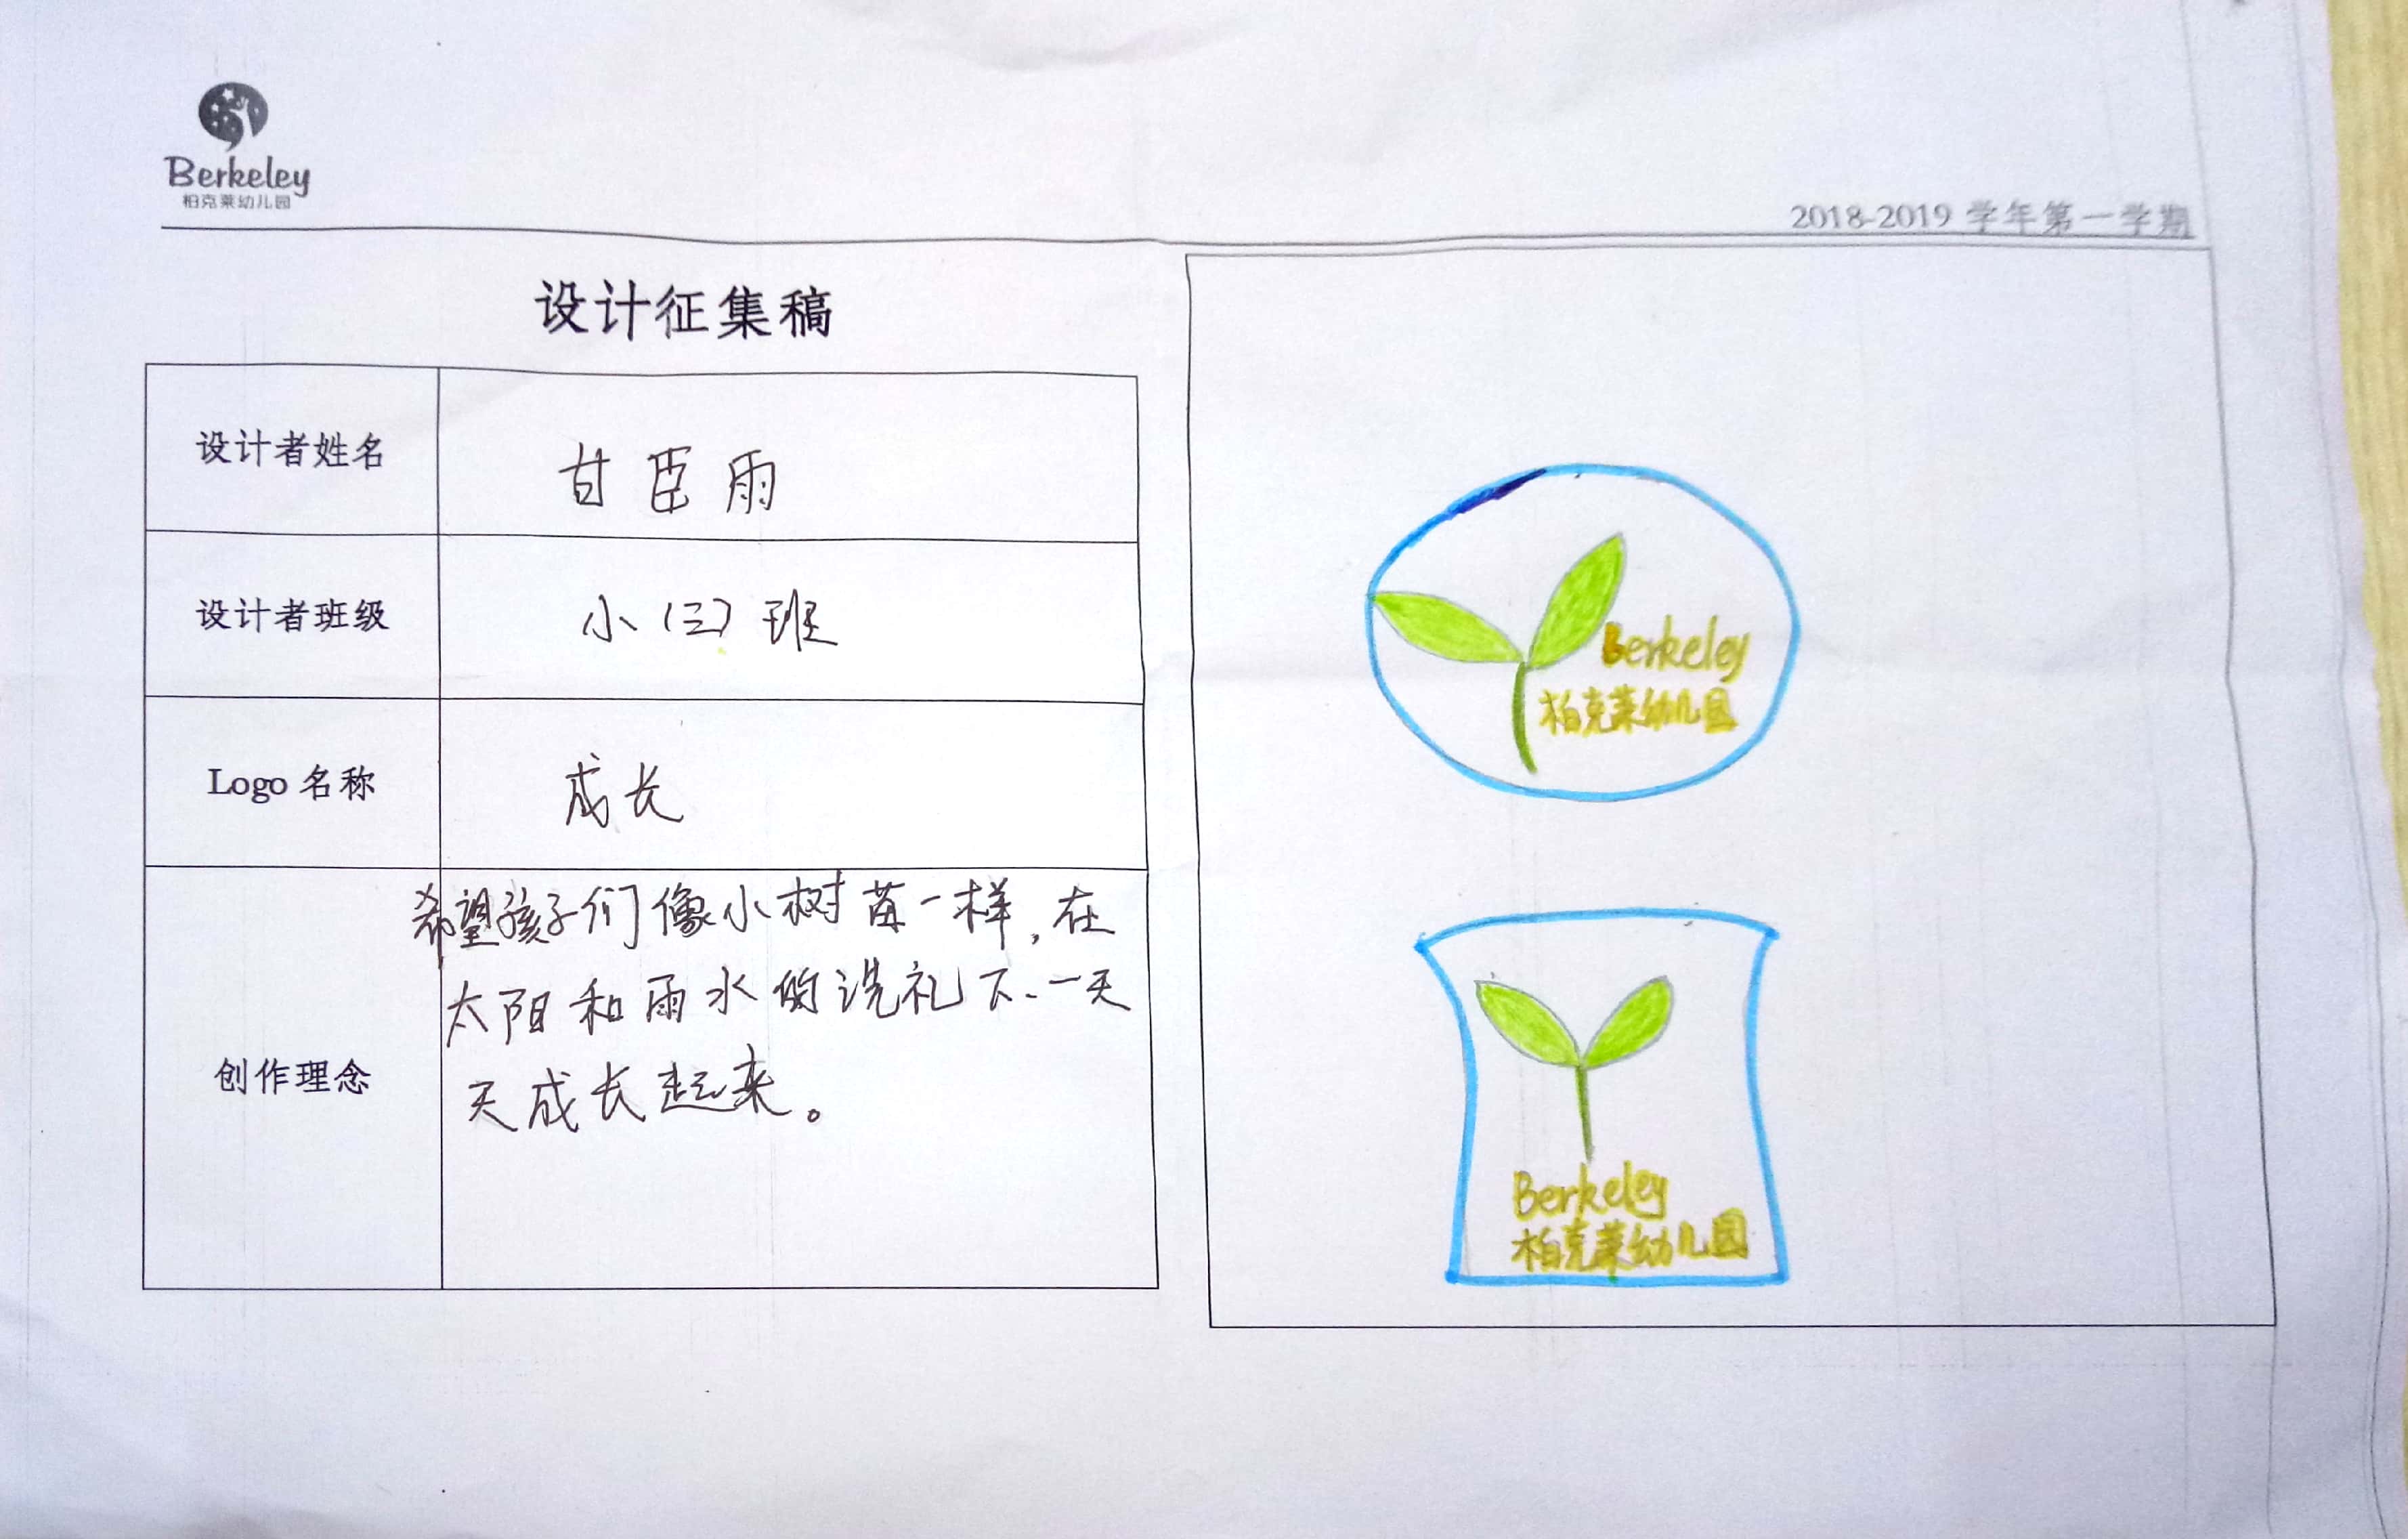 Berkeley
柏克莱幼儿园
2018-2019 学年第一学期
设计征集稿
设计者姓名
甘臣雨
设计者班级
小(三)班
Logo 名称
成长
创作理念
希望孩子们像小树苗一样,在
太阳和雨水的洗礼下、一天
天成长起来。
Berkeley
柏克莱幼儿园
Berkeley
柏克莱幼儿园